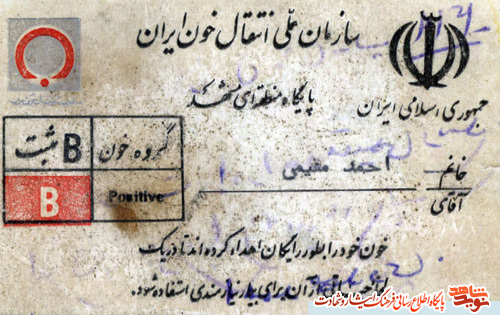 سازمان ملی انتقال خون ایران
جمهوری اسلامی ایران
پایگاه منطقه‌ای مشهد
گروه خون
B مثبت
Positive
B
خانم
آقای
احمد مقیمی
خون خود را بطور رایگان اهداء کرده اند تا در یک
از آن برای بیمار نیازمندی استفاده شود.
پایگاه اطلاع رسانی فرهنگ ایثار و شهادت
نوید شاهد